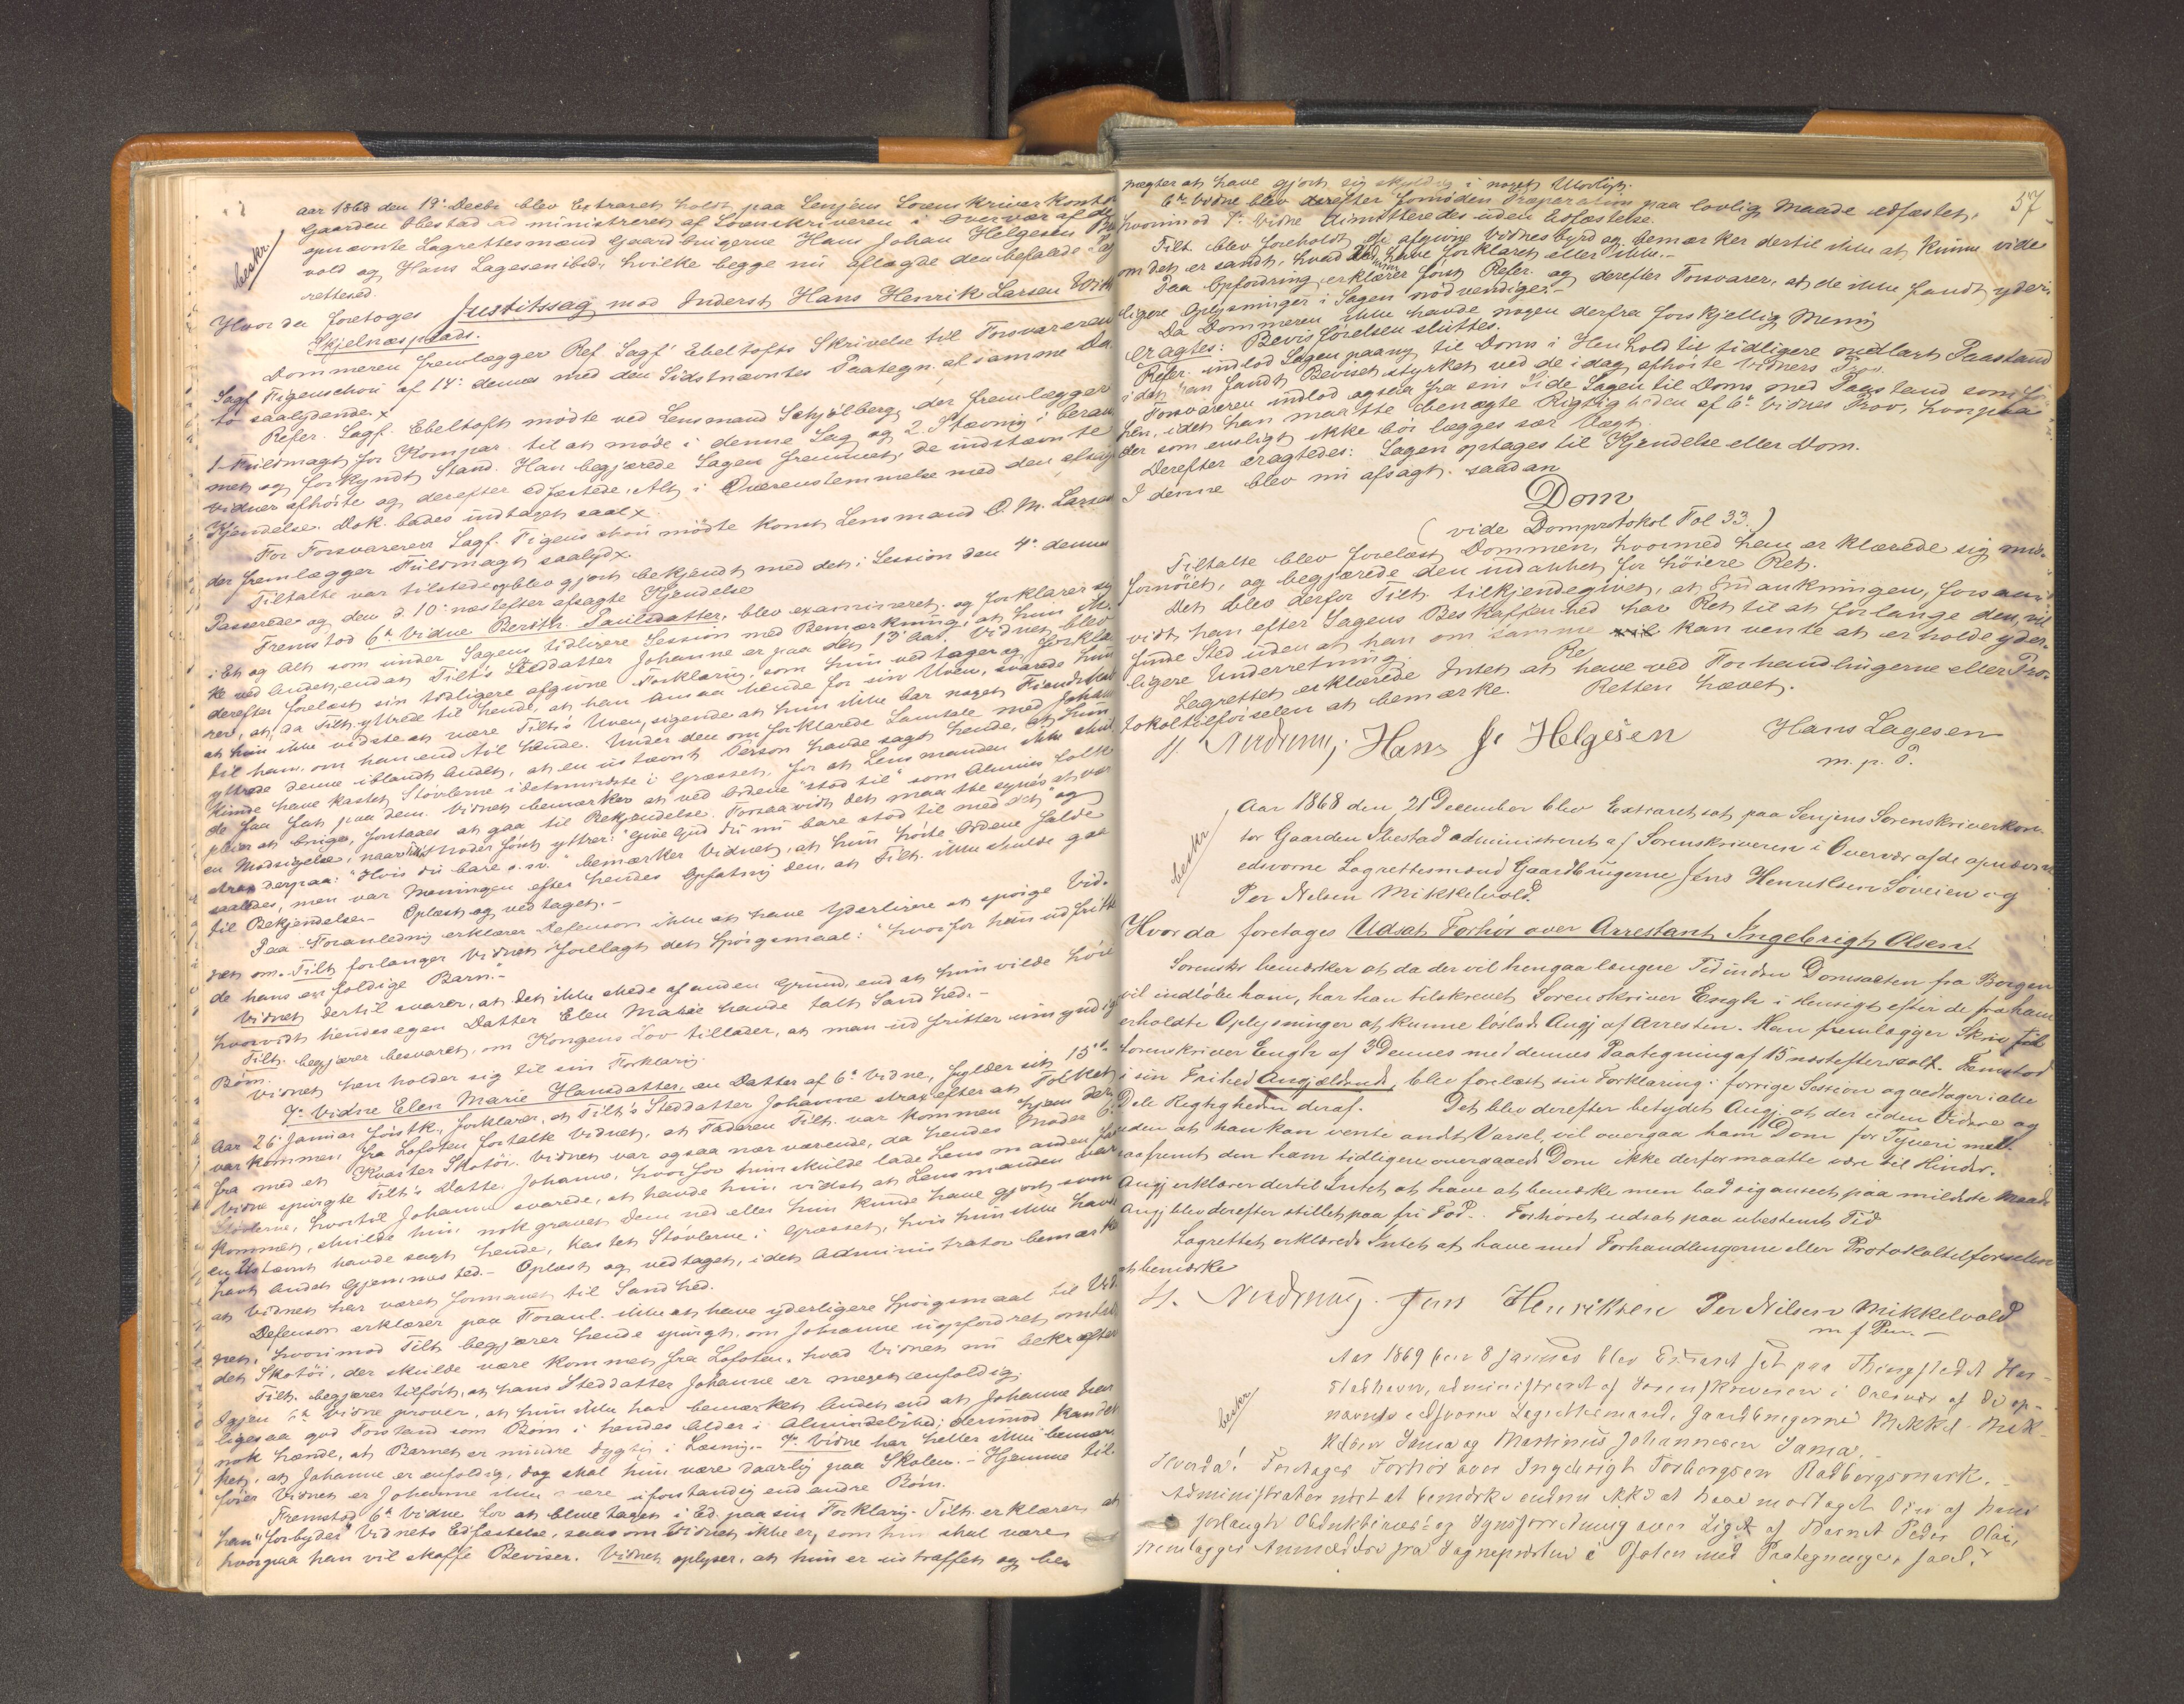 Aar 1868 den 19de Decbr blev Extraret holdt paa Senjens Sorenskriver Kontor
Gaarden Ibestad administreret af Sorenskriveren i Overvær af de
opnævnte Lagrettesmænd Gaardbrugerne Hans Johan Helgesen
vold og Hans Lagesen ibid., hvilke begge nu aflagde den befalede Lag
rettesed.
beskr
Hvor da foretoges Justitssag mod Inderst Hans Henrik Larsen
Skjelnæsplads.
Dommeren fremlægger Ref. Sagf. Ebeltofts Skrivelse til Forsvareren
Sagf. Figenschou af 14de dennes med den Sidstnævntes Paategn. af samme Da
to saalydende x
Refer. Sagf. Ebeltoft mødte ved Lensmand Schjølberg der fremlægger
1 Fuldmagt for Kompar. til at møde i denne Sag og 2. Stævning i beram
met og forkyndt Stand. Han begjærede Sagen fremmet, de indstævnte
Vidner afhørte og derefter edfæstede, Alt i Overensstemmelse med den afsagte
Kjendelse. Dok. bades indtaget saal x
For Forsvareren Sagf. Figenschou mødte konst. Lensmand O. M. Larsen
der fremlægger Fuldmagt saalyd x.
Tiltalte var tilstede og blev gjort bekjendt med det i Session den 4de dennes
Passerede og den d 10de næstefter afsagte Kjendelse
Fremstod 6te Vidne Berith Paulsdatter, blev examineret og forklarer sig
i Et og Alt som under Sagens tidligere Session med Bemærkning, at hun ik
ke ved andet, end at Tilt's Steddatter Johanne er paa det 13de Aar. Vidnet blev
derefter forelæst sin tidligere afgivne Forklaring, som hun vedtager og forkla
rer, at, da Tilt. yttrede til hende, at han ansaa hende for sin Uven, svarede hun
at hun ikke vidste at være Tilt's Uven, sigende at hun ikke bar noget Fiendskab
til ham, om han end til hende. Under den omforklarede Samtale med Johan
yttrede denne iblandt Andet, at en ustævnt Person havde sagt hende, at hun
kunde have kastet Støvlerne idetmindste i Græsset, for at Lensmanden ikke skul
de faa fat paa dem. Vidnet bemærker at ved Ordene "stod til" som Almues Folk
pleier at bruge, forstaaes at gaa til Bekjendelse. Forsaavidt det maatte synes at være
en Modsigelse, naar Tilt's Moder først yttrer: "Give Gud du nu bare stod til med det" og
strax derpaa: "Hvis du bare o.s.v." bemærker Vidnet, at hun hørte Ordene falde
saaledes, men var Meningen efter hendes Opfatning den, at Tilt. ikke skulde gaa
til Bekjendelse. Oplæst og vedtaget.
Paa Foranledning erklærer Defensor ikke at have Yderligere at spørge Vid-
net om. Tilt. forlanger Vidnet forelagt det Spørgsmaal: "hvorfor hun udfritte
de hans enfoldige Barn".
Vidnet dertil svarer, at det ikke skede af anden Grund, end at hun vilde høre
hvorvidt hendes egen Datter Elen Marie havde talt Sandhed.
Tilt. begjærer besvaret, om Kongens Lov tillader, at man udfritter umyndige
Børn.
Vidnet henholder sig til sin Forklaring.
7de Vidne Elen Marie Hansdatter, en Datter af 6te Vidne, fylder sit 15de
Aar 26de Januar førstk., forklarer, at Tilt's Steddatter Johanne strax efter at Folket
var kommen fra Lofoten fortalte Vidnet, at Faderen Tilt. var kommen hjem der
fra med et Kvarter Skotøi. Vidnet var ogsaa nærværende, da hendes Moder 6te
Vidne spurgte Tilt's Datter Johanne, hvorfor hun skulde lade Lensmanden faa
Støvlerne, hvortil Johanne svarede, at havde hun vidst at Lensmanden var
kommet, skulde hun nok gravet dem ned eller hun kunde have gjort som
en Ustævnt havde sagt hende, kastet Støvlerne i Græsset, hvis hun ikke havde
havt andet Gjemmested. Oplæst og vedtaget, idet Administrator bemærker
at Vidnet har været formanet til Sandhed.
Defensor erklærer paa Foranl. ikke at have yderligere Spørgsmaal til Vid-
net, hvorimod Tilt. begjærer hende spurgt, om Johanne uopfordret omtal
det Skotøi, der skulde være kommet fra Lofoten, hvad Vidnet nu bekræfter
Tilt. begjærer tilført, at hans Steddatter Johanne er meget enfoldig.
Igjen 6te Vidne prover, at hun ikke har bemærket andet end at Johanne har
ligesaa god Forstand som Børn i hendes Alder i Almindelighed; derimod kan det
nok hænde, at Barnet er mindre dygtig i Læsning. 7de Vidne har heller ikke bemær
ket, at Johanne er enfoldig, dog skal hun være daarlig paa Skolen. Hjemme til-
føier Vidnet er Johanne ikke mere uforstandig end andre Børn.
Fremstod 6te Vidne for at blive taget i Ed paa sin Forklaring. Tilt. erklærer at
han "forbyder" Vidnets Edfæstelse, saasom Vidnet ikke er, som hun skal være
hvorpaa han vil skaffe Beviser. Vidnet oplyser, at hun er ustraffet og be
57
nægter at have gjort sig skyldig i noget Ulovligt.
6te Vidne blev derefter foruden Præparation paa lovlig Maade edfæstet,
hvorimod 7de Vidne dimitteredes uden Edfæstelse.
Tilt. blev foreholdt de afgivne Vidnesbyrd og bemærker dertil ikke at kunne vide
om det er sandt, hvad Vidnerne have forklaret eller ikke.
Paa Opfordring erklærer først Refer. og derefter Forsvarer, at de ikke fandt yder-
ligere Oplysninger i Sagen nødvendige.
Da Dommeren ikke havde nogen derfra forskjellig Mening
eragtes: Bevisførelsen sluttes.
Refer. indlod Sagen paany til Doms i Henhold til tidligere nedlagt Paastand
idet han fandt Beviset styrket ved de idag afhørte Vidners Prov.
Forsvareren indlod ogsaa fra sin Side Sagen til Doms med Paastand som før
hen, idet han maatte benægte Rigtigheden af 6te Vidnes Prov, hvorpaa
der som ensligt ikke bør lægges sær Vægt.
Derefter eragtedes: Sagen optages til Kjendelse eller Dom.
I denne blev nu afsagt saadan
Dom
(vide Domprotokol Fol 33.)
Tiltalte blev forelæst Dommen, hvormed han erklærede sig mis-
fornøiet, og begjærede den indanket for høiere Ret.
Det blev derfor Tilt. tilkjendegivet, at Indankningen, forsaa-
vidt han efter Sagens Beskaffenhed har Ret til at forlange den, vil
finde Sted uden at han om Samme kan vente at erholde yder-
ligere Underretning.
Lagrettet erklærede Intet at have ved Forhandlingerne eller Pro-
tokoltilførselen at bemærke. Retten hævet.
Hans J. Helgesen
Hans Lagesen
m. p. P.
beskr
Aar 1868 den 21 December blev Extraret sat paa Senjens Sorenskriverkon-
tor Gaarden Ibestad administreret af Sorenskriveren i Overvær af de opnævnte
edsvorne Lagrettesmænd Gaardbrugerne Jens Henriksen Søveien og
Per Nilsen Mikkelvold.
Hvor da foretoges Udsat Forhør over Arrestant Ingebrigt Olsen.
Sorenskr. bemærker at da der vil hengaa længere Tid inden Domsakten fra Borgen
vil indløbe ham, har han tilskrevet Sorenskriver Engh i Hensigt efter de fra ham
erholdte Oplysninger at kunne løslade Angj. af Arresten. Han fremlægger Skriv. til
Sorenskriver Engh af 3 Dennes med dennes Paategning af 15 næstefter saal x. Fremstod
i sin Frihed Angjældende, blev forelæst sin Forklaring i forrige Session og vedtager i alle
Dele Rigtigheden deraf. Det blev derefter betydet Angj. at der uden Videre og
uden at han kan vente andet Varsel, vil overgaa ham Dom for Tyveri med
saafremt den ham tidligere overgaaede Dom ikke derfor maatte være til Hinder.
Angj erklærer dertil Intet at have at bemærke men bad sig anseet paa mildeste Maade
Angj blev derefter stillet paa fri Fod. Forhøret udsat paa ubestemt Tid
Lagrettet erklærede Intet at have ved Forhandlingerne eller Protokoltilførselen
at bemærke
Jens Henriksen Per Nilsen Mikkelvold
m f Pen.
beskr
Aar 1869 den 8 Januar blev Extraret sat paa Thingstedet Har-
stadhavn, administreret af Sorenskriveren i Overvær af de op-
nævnte edsvorne Lagrettesmænd, Gaardbrugerne Mikkel Mik-
kelsen Sama og Martinus Johannesen Sama.
Hvorda! Foretages Forhør over Ingebrigt Torbergsen Rødbergsmark.
Administrator
forlangt Obduktions og Synsforretning over Liget af Barnet Peder Olai,
fremlægger Anmeldelse fra Sognepresten i Ofoten med Paategninger, saal. x